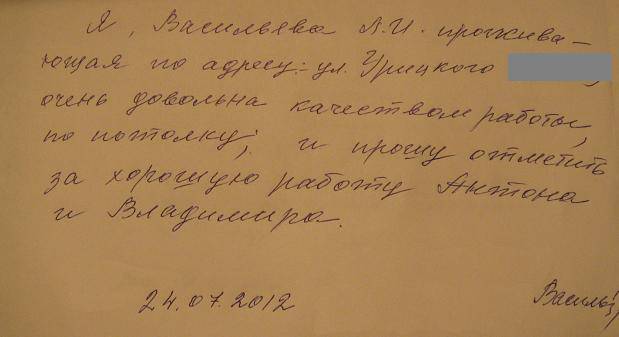 Я, Васильева Л.И. прожива-
ющая по адресу:- ул. Урицкого
очень довольна качеством работы,
по потолку; и прошу отметить
за хорошую работу Антона
и Владимира.
24.07.2012 Василь